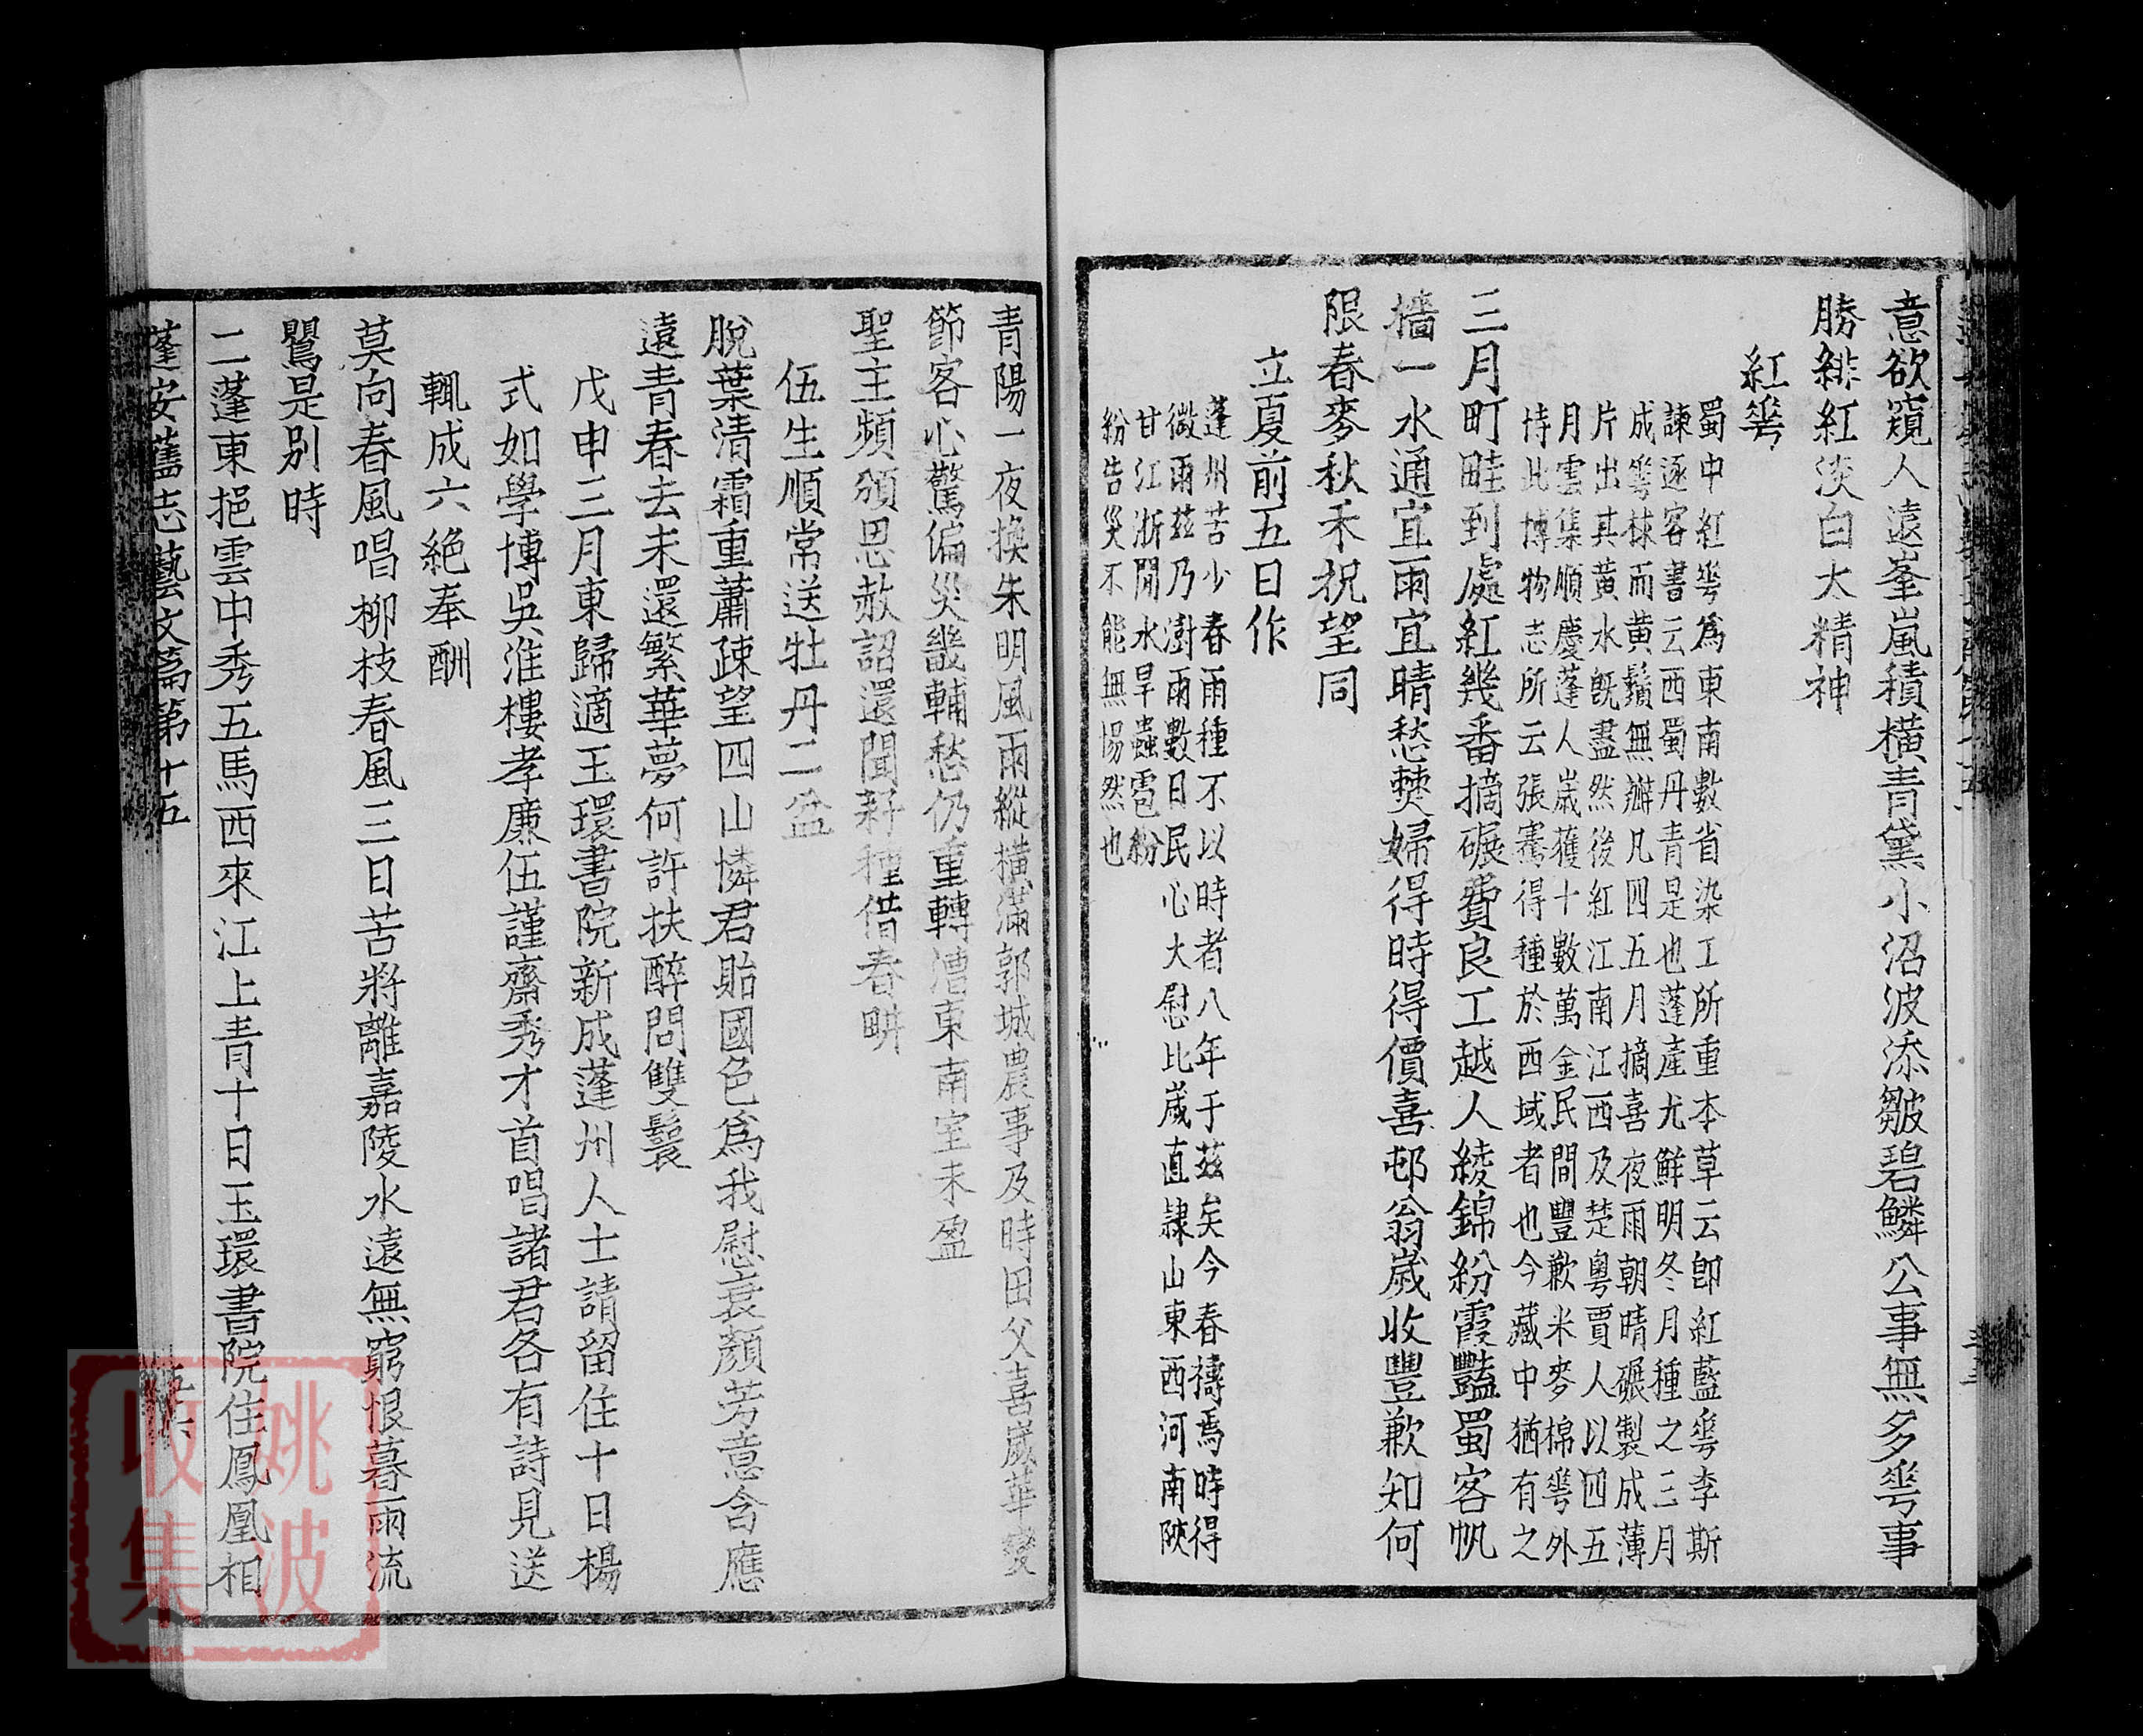 意欲窺人遠峯嵐積橫青黛小沼波添皺碧鱗公事無多蕚事
勝緋紅淡白大精神
紅蕚
蜀中紅蕚爲東南數省染工所重本草云卽紅藍蕚李斯
諫逐客書云西蜀丹青是也蓬產尤鮮明冬月種之三月
成蕚梂而黃鬚無瓣凡四五月摘喜夜雨朝晴碾製成薄
片出其黃水既盡然後紅江南江西及楚粵賈人以四五
月雲集順慶蓬人歲獲十數萬金民間豐歉米麥棉蕚外
恃此博物志所云張騫得種於西域者也今藏中猶有之
三月町畦到處紅幾番摘碾費良工越人綾錦紛霞豔蜀客帆
牆一水通宜雨宜晴愁爨婦得時得價喜邨翁歲收豐歉知何
限春麥秋禾祝望同
立夏前五日作
蓬州苦少春雨種不以時者八年于茲矣今春禱焉時得
微雨茲乃澍雨數日民心大慰比歲直隸山東西河南陝
甘江浙閒水旱蟲雹紛
紛告災不能無惕然也
青陽一夜換朱明風雨縱橫滿郭城農事及時田父喜歲華變
節客心驚偏災畿輔愁仍重轉漕東南室未盈
聖主頻頒恩赦詔還聞耔種借春畊
伍生順常送牡丹二盆
脫葉清霜重蕭疎望四山憐君貽國色爲我慰衰顏芳意含應
遠青春去未還繁華夢何許扶醉問雙鬟
戊申三月東歸適玉環書院新成蓬州人士請留住十日楊
式如學博吳淮樓孝廉伍謹齋秀才首唱諸君各有詩見送
輒成六絶奉酬
莫向春風唱柳枝春風三日苦將離嘉陵水遠無窮恨暮雨流
鶯是別時
二蓬東挹雲中秀五馬西來江上青十日玉環書院住鳳凰相
蓬安舊志藝文篇第十五
姚波
收集